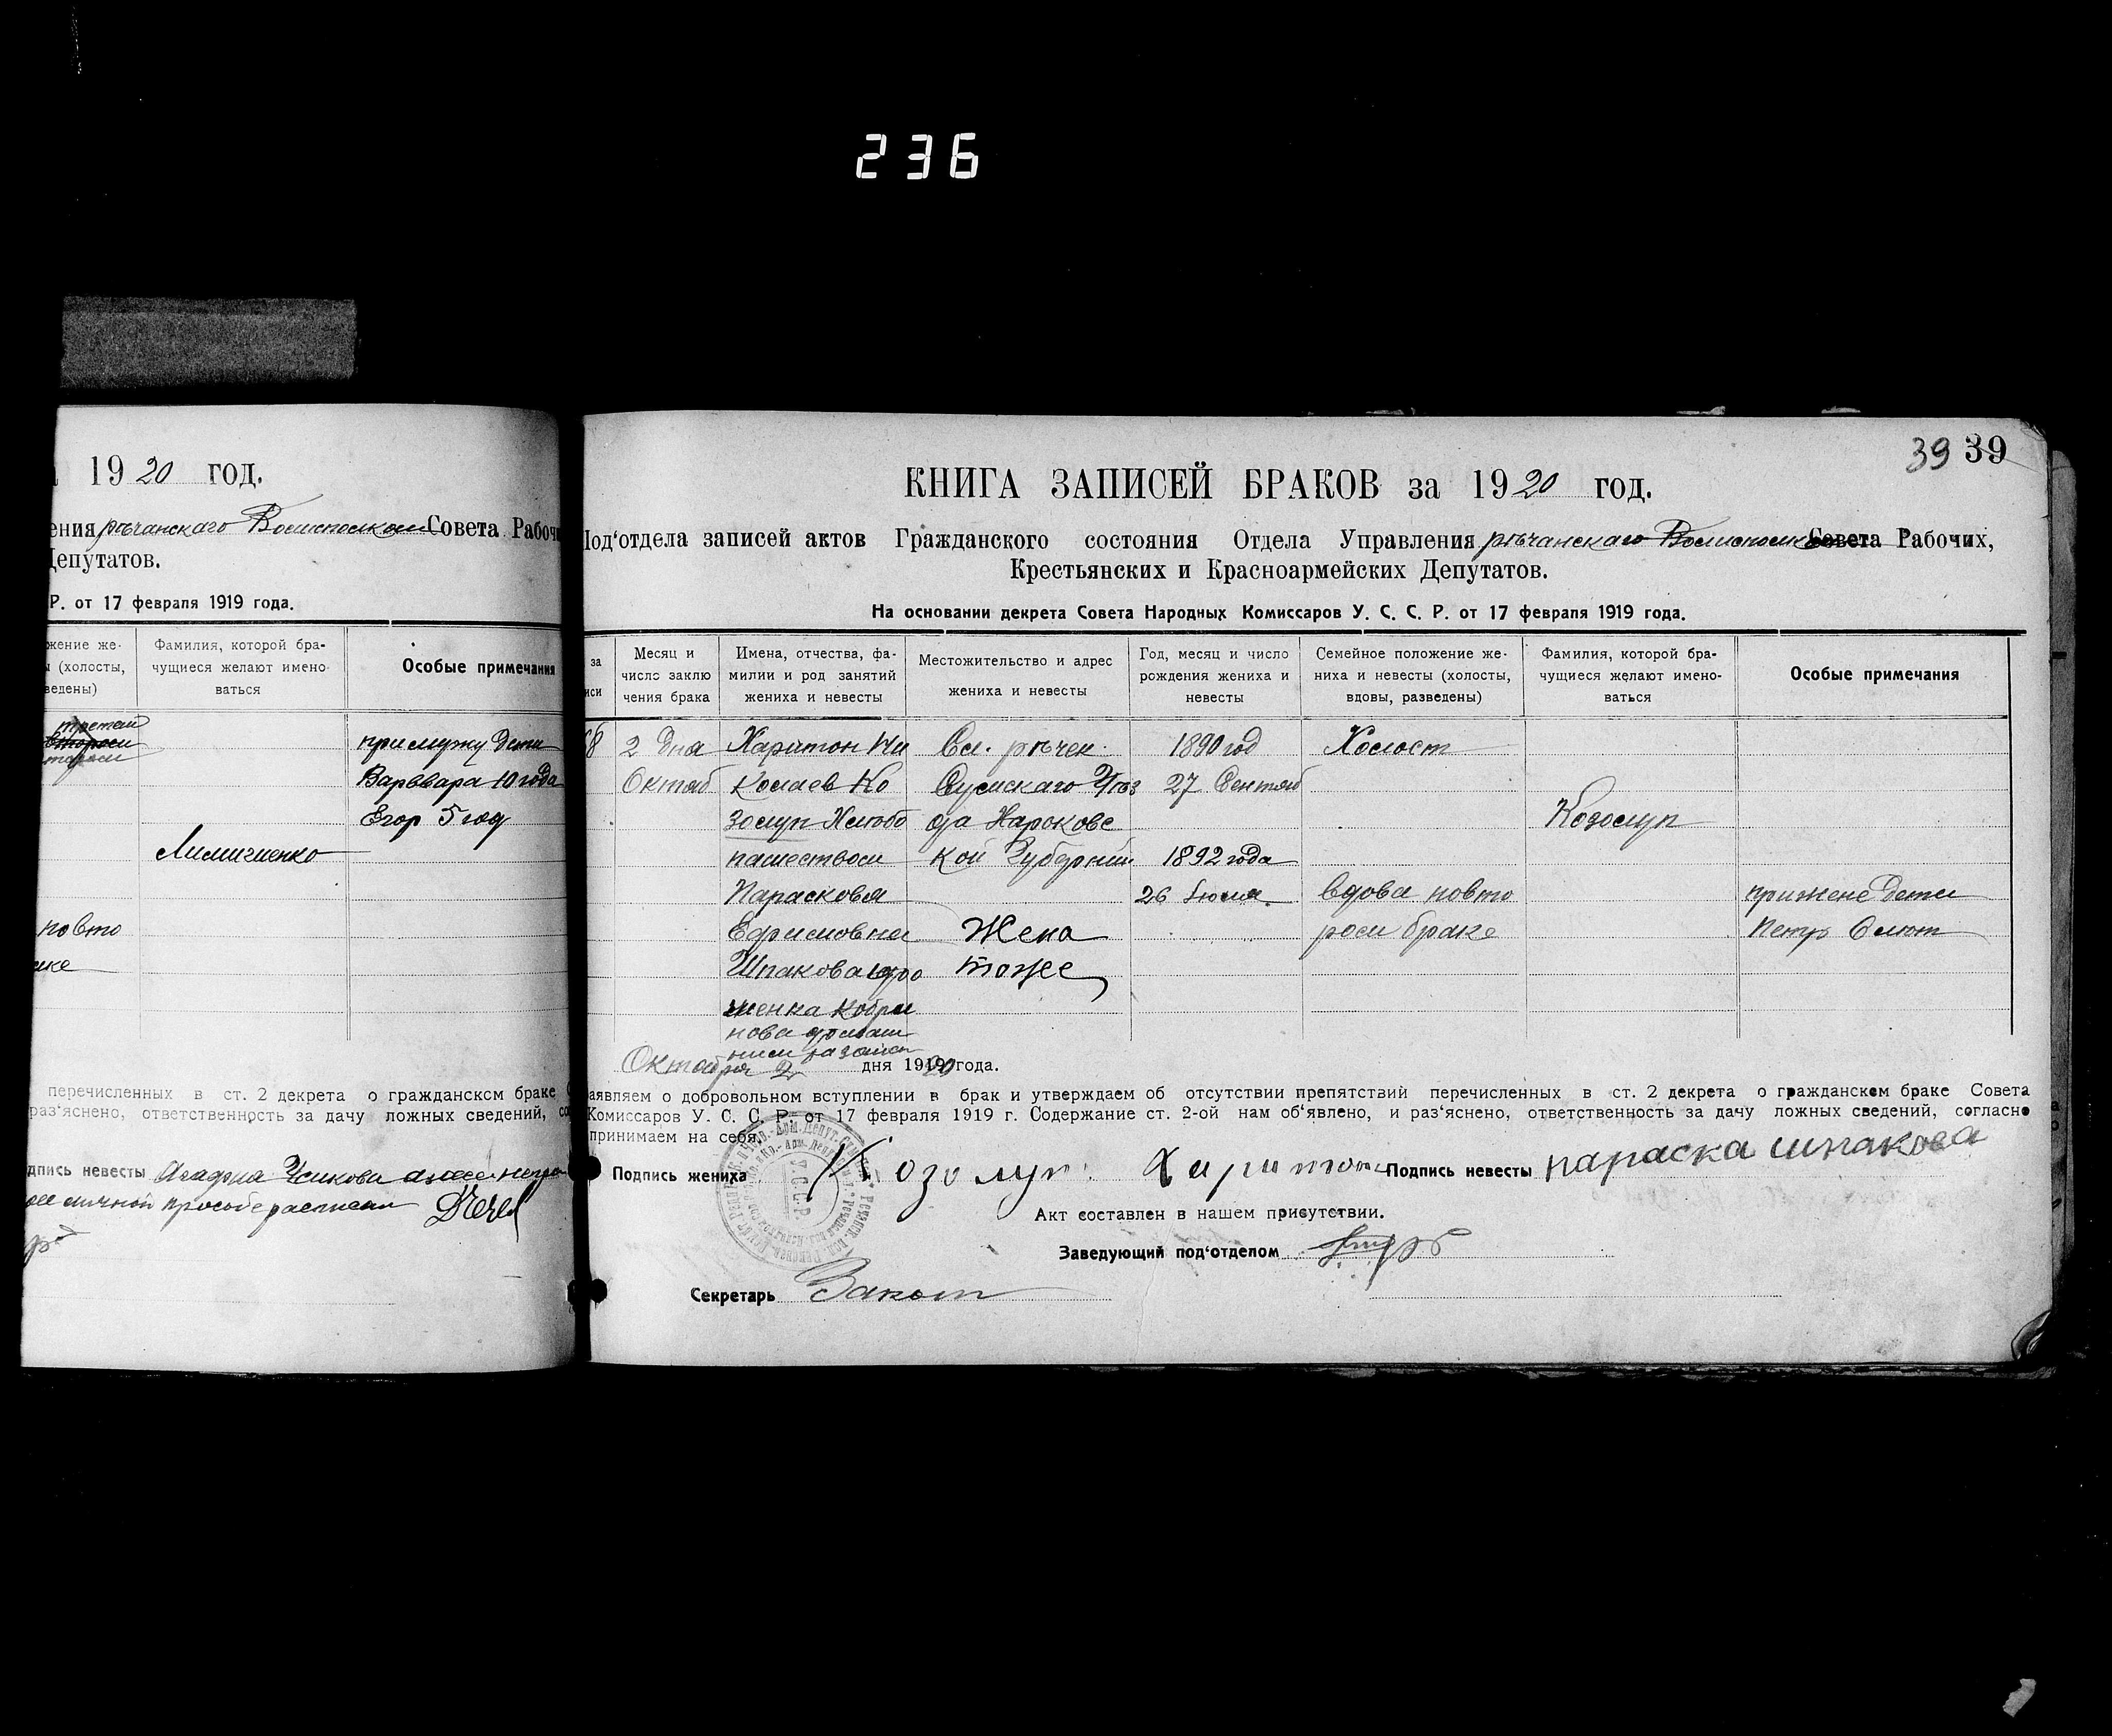 236
1920 год.
ения рѣчанскаго Волисполком Совета Рабочи
Депутатов.
Р. от 17 февраля 1919 года.
жение же-
(холосты,
ведены)
Фамилия, которой бра-
чущиеся желают имено-
ваться
Особые примечания
третей
второй
примужу дети
Варввара 10 года
Егор 5 год
повто
перечисленных в ст. 2 декрета о гражданском браке
раз'яснено, ответственность за дачу ложных сведений, со
дпись невесты
личной прозбе
39 39
КНИГА ЗАПИСЕЙ БРАКОВ за 1920 год.
Под'отдела записей актов Гражданского состояния Отдела Управления рѣчанскаго Волисполком Совета Рабочих,
Крестьянских и Красноармейских Депутатов.
На основании декрета Совета Народных Комиссаров У. С. С. Р. от 17 февраля 1919 года.
за
иси
Месяц и
число заклю
чения брака
Имена, отчества, фа-
милии и род занятий
жениха и невесты
Местожительство и адрес
жениха и невесты
Год, месяц и число
рождения жениха и
невесты
Семейное положение же-
ниха и невесты (холосты,
вдовы, разведены)
Фамилия, которой бра-
чущиеся желают имено-
ваться
Особые примечания
8
2 Дня
Октяб
Харитон Ни
колаев Ко
золуп Хлебо
пашеством
Парасковея
Ефимовна
Шпакова
нова
Сл. рѣчек
Сумскаго Уѣз
да Харкове
кой Губернии
Жена
тоже
1890 год
27 Сентяб
1892 года
26 Июля
Холост
вдова повто
ром браке
Козолуп
прижене дети
Петр
Октября 2 дня 1920 года.
аявляем о добровольном вступлении в брак и утверждаем об отсутствии препятствий перечисленных в ст. 2 декрета о гражданском браке Совета
Комиссаров У. С. С. Р. от 17 февраля 1919 г. Содержание ст. 2-ой нам об'явлено, и раз'яснено, ответственность за дачу ложных сведений, согласно
принимаем на себя.
Подпись жениха Козолуп Харитон Подпись невесты параска шпакова
Акт составлен в нашем присутствии.
Заведующий под'отделом
Секретарь